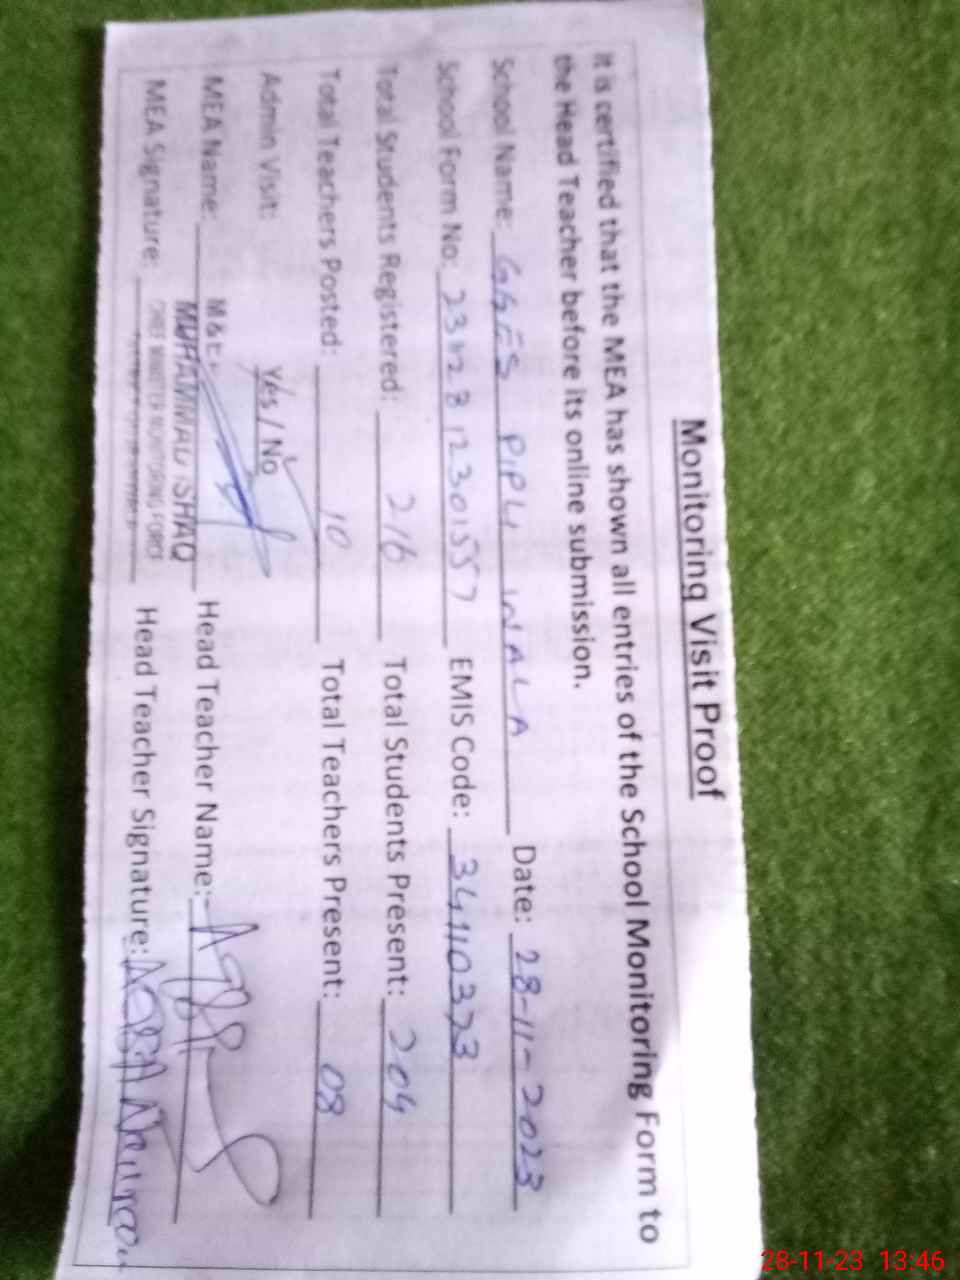 Monitoring Visit Proof
It is certified that the MEA has shown all entries of the School Monitoring Form to
the Head Teacher before its online submission.
School Name: GGES PIPLI WALA Date: 28-11-2023
School Form No: EMIS Code: 34110373
Total Students Registered: 216 Total Students Present: 204
Total Teachers Posted: 10 Total Teachers Present: 08
Admin Visit: Yes / No
MEA Name: MUHAMMAD ISHAQ Head Teacher Name:-
MEA Signature: CHIEF MINISTER MONITORING FORCE Head Teacher Signature:
28-11-23 13:46